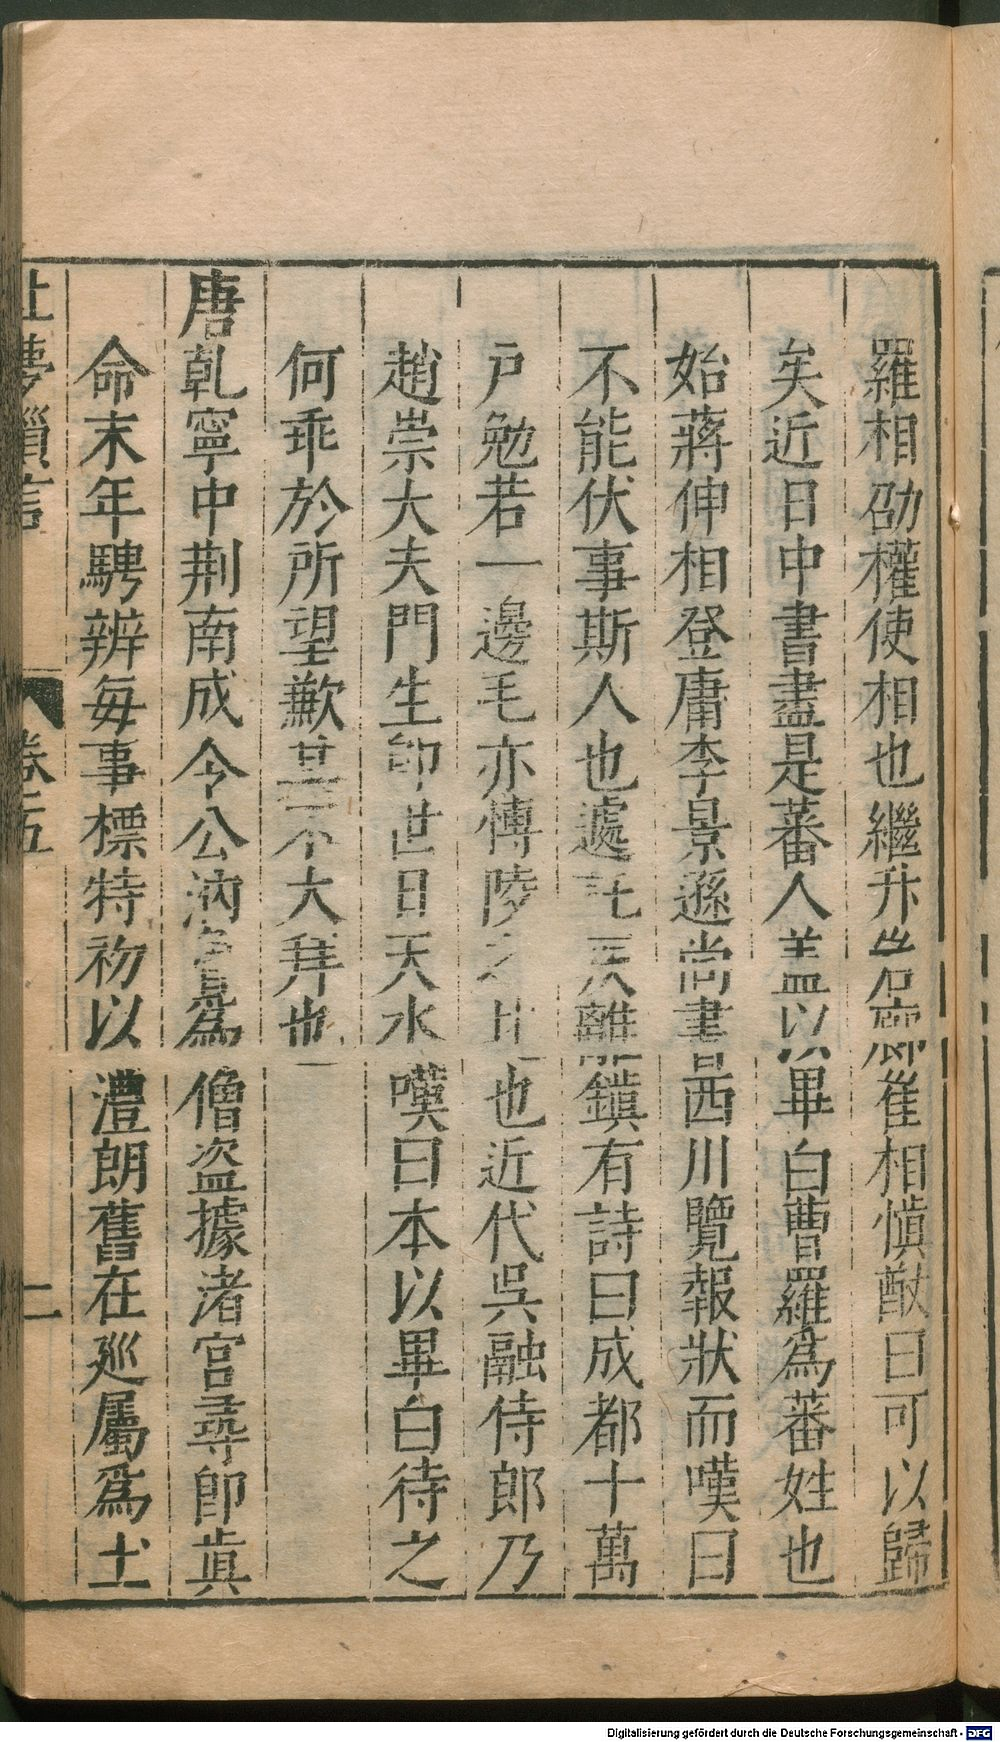 羅相劭權使相也繼升岩廊崔相慎猷曰可以歸
矣近日中書盡是蕃人蓋以畢白曹羅為蕃姓也
始蔣伸相登庸李景遜尚書西川覽報狀而嘆曰
不能伏事斯人也遽託疾離鎮有詩曰成都十萬
戶勉若一邊毛亦慱陵之比也近代吳融侍郎乃
趙崇大夫門生即世日天水嘆曰本以畢白待之
何乖於所望歉其不大拜也
唐乾寧中荆南成令公汭曾為僧盜據渚宮尋即眞
命末年騁辨每事標特初以澧朗舊在廵屬為土
夢瑣言 卷五 二
Digitalisierung gefördert durch die Deutsche Forschungsgemeinschaft - DFG